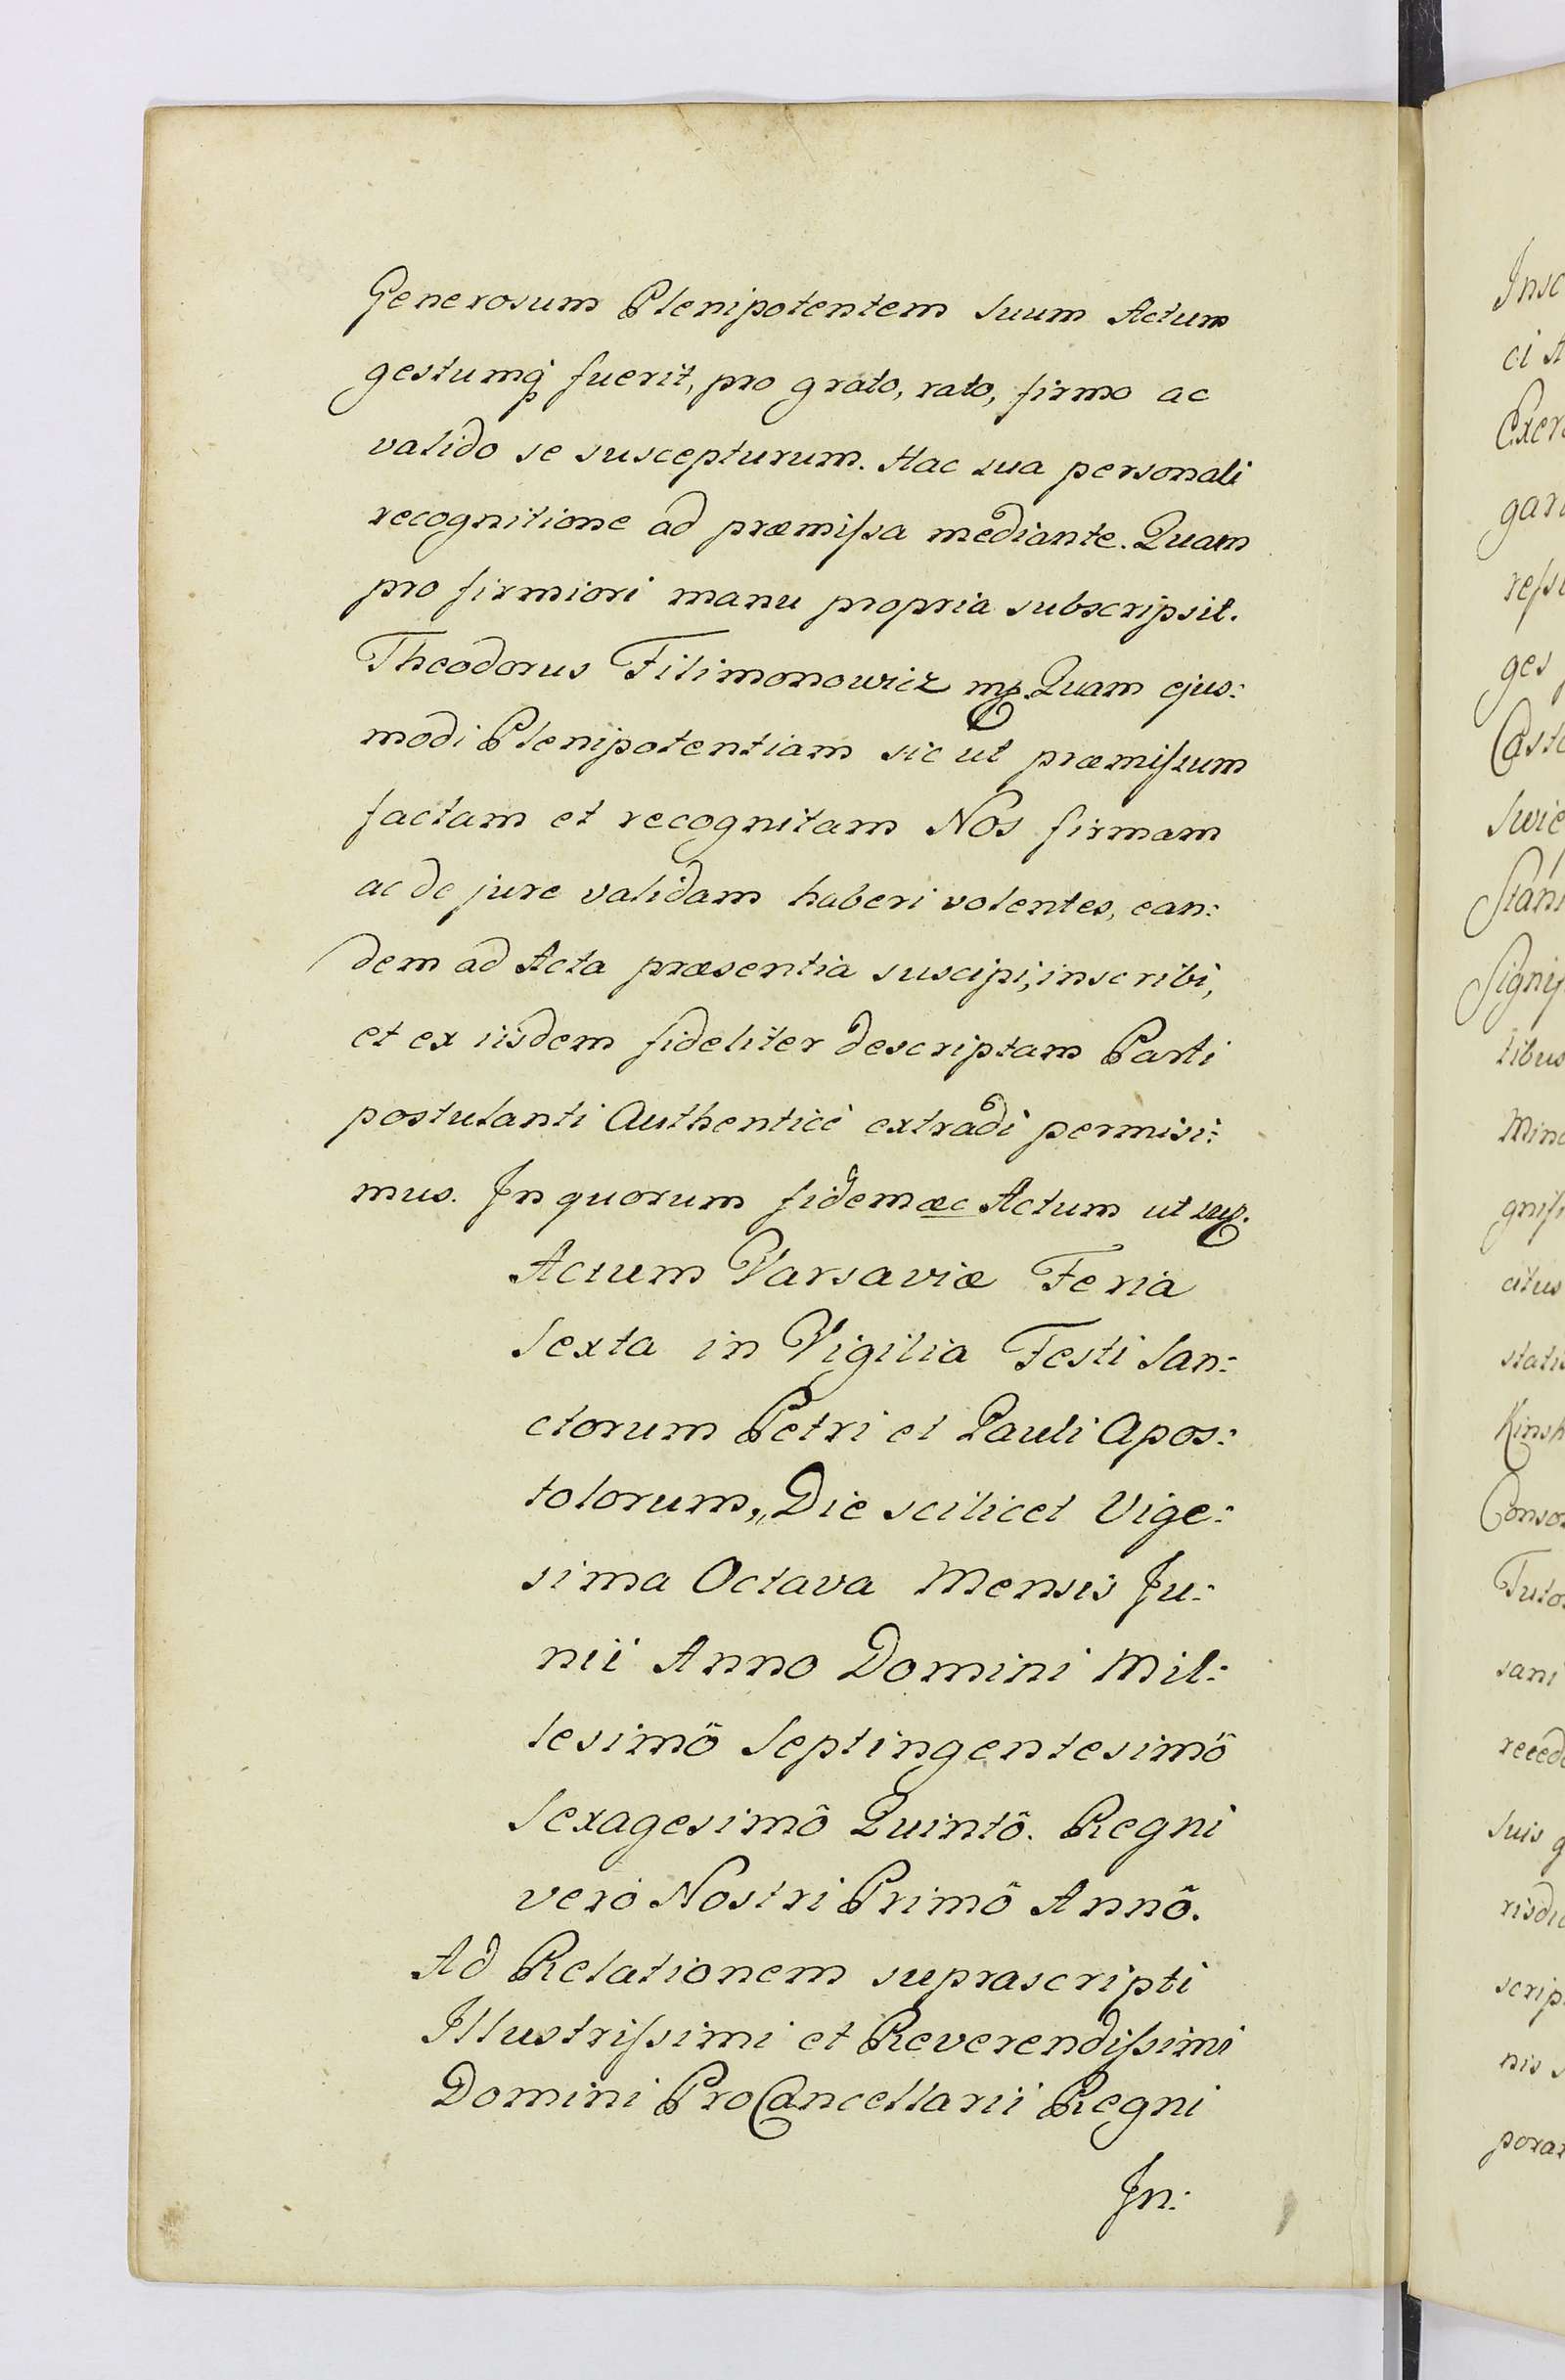 Generosum Plenipotentem suum Actum
gestumq fuerit, pro grato, rato, firmo ac
valido se suscepturum. Hac sua personali
recognitione ad præmiſsa mediante. Quam
pro firmiori manu propria subscripsit.
Theodorus Filimonowicz mp. Quam ejus:
modi Plenipotentiam sic ut præmiſsum
factam et recognitam Nos firmam
ac de jure validam haberi volentes, ean:
dem ad Acta præsentia suscipi, inscribi,
et ex iisdem fideliter descriptam Parti
postulanti Authenticè extradi permisi:
mus. In quorum fidem æc Actum ut sup.
Actum Varsaviæ Feria
Sexta in Vigilia Festi San:
ctorum Petri et Pauli Apos:
tolorum, Die scilicet Vige:
sima Octava Mensis Ju:
nii Anno Domini Mil:
lesimô Septingentesimô
Sexagesimô Quintô. Regni
verò Nostri Primô Annô.
Ad Relationem suprascripti
Illustriſsimi et Reverendiſsimi
Domini ProCancellarii Regni
In:
Insc
ci A
Exer
gar
reſsi
ges
Caste
Swie
Stani
Signif
tibus
Mino
gnifi
citus
statis
Kinsk
Conso
Tuto
sani
reced
suis q
risdic
scrip
nis s
porar